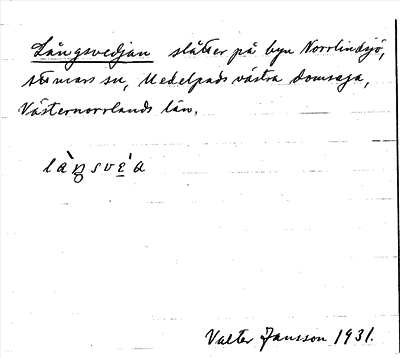 Långsvedjan slåtter på byn Norrlindsjö,
Attmars sn, Medelpads västra domsaga,
Västernorrlands län.
làŋsvèa
Valter Jansson 1931.